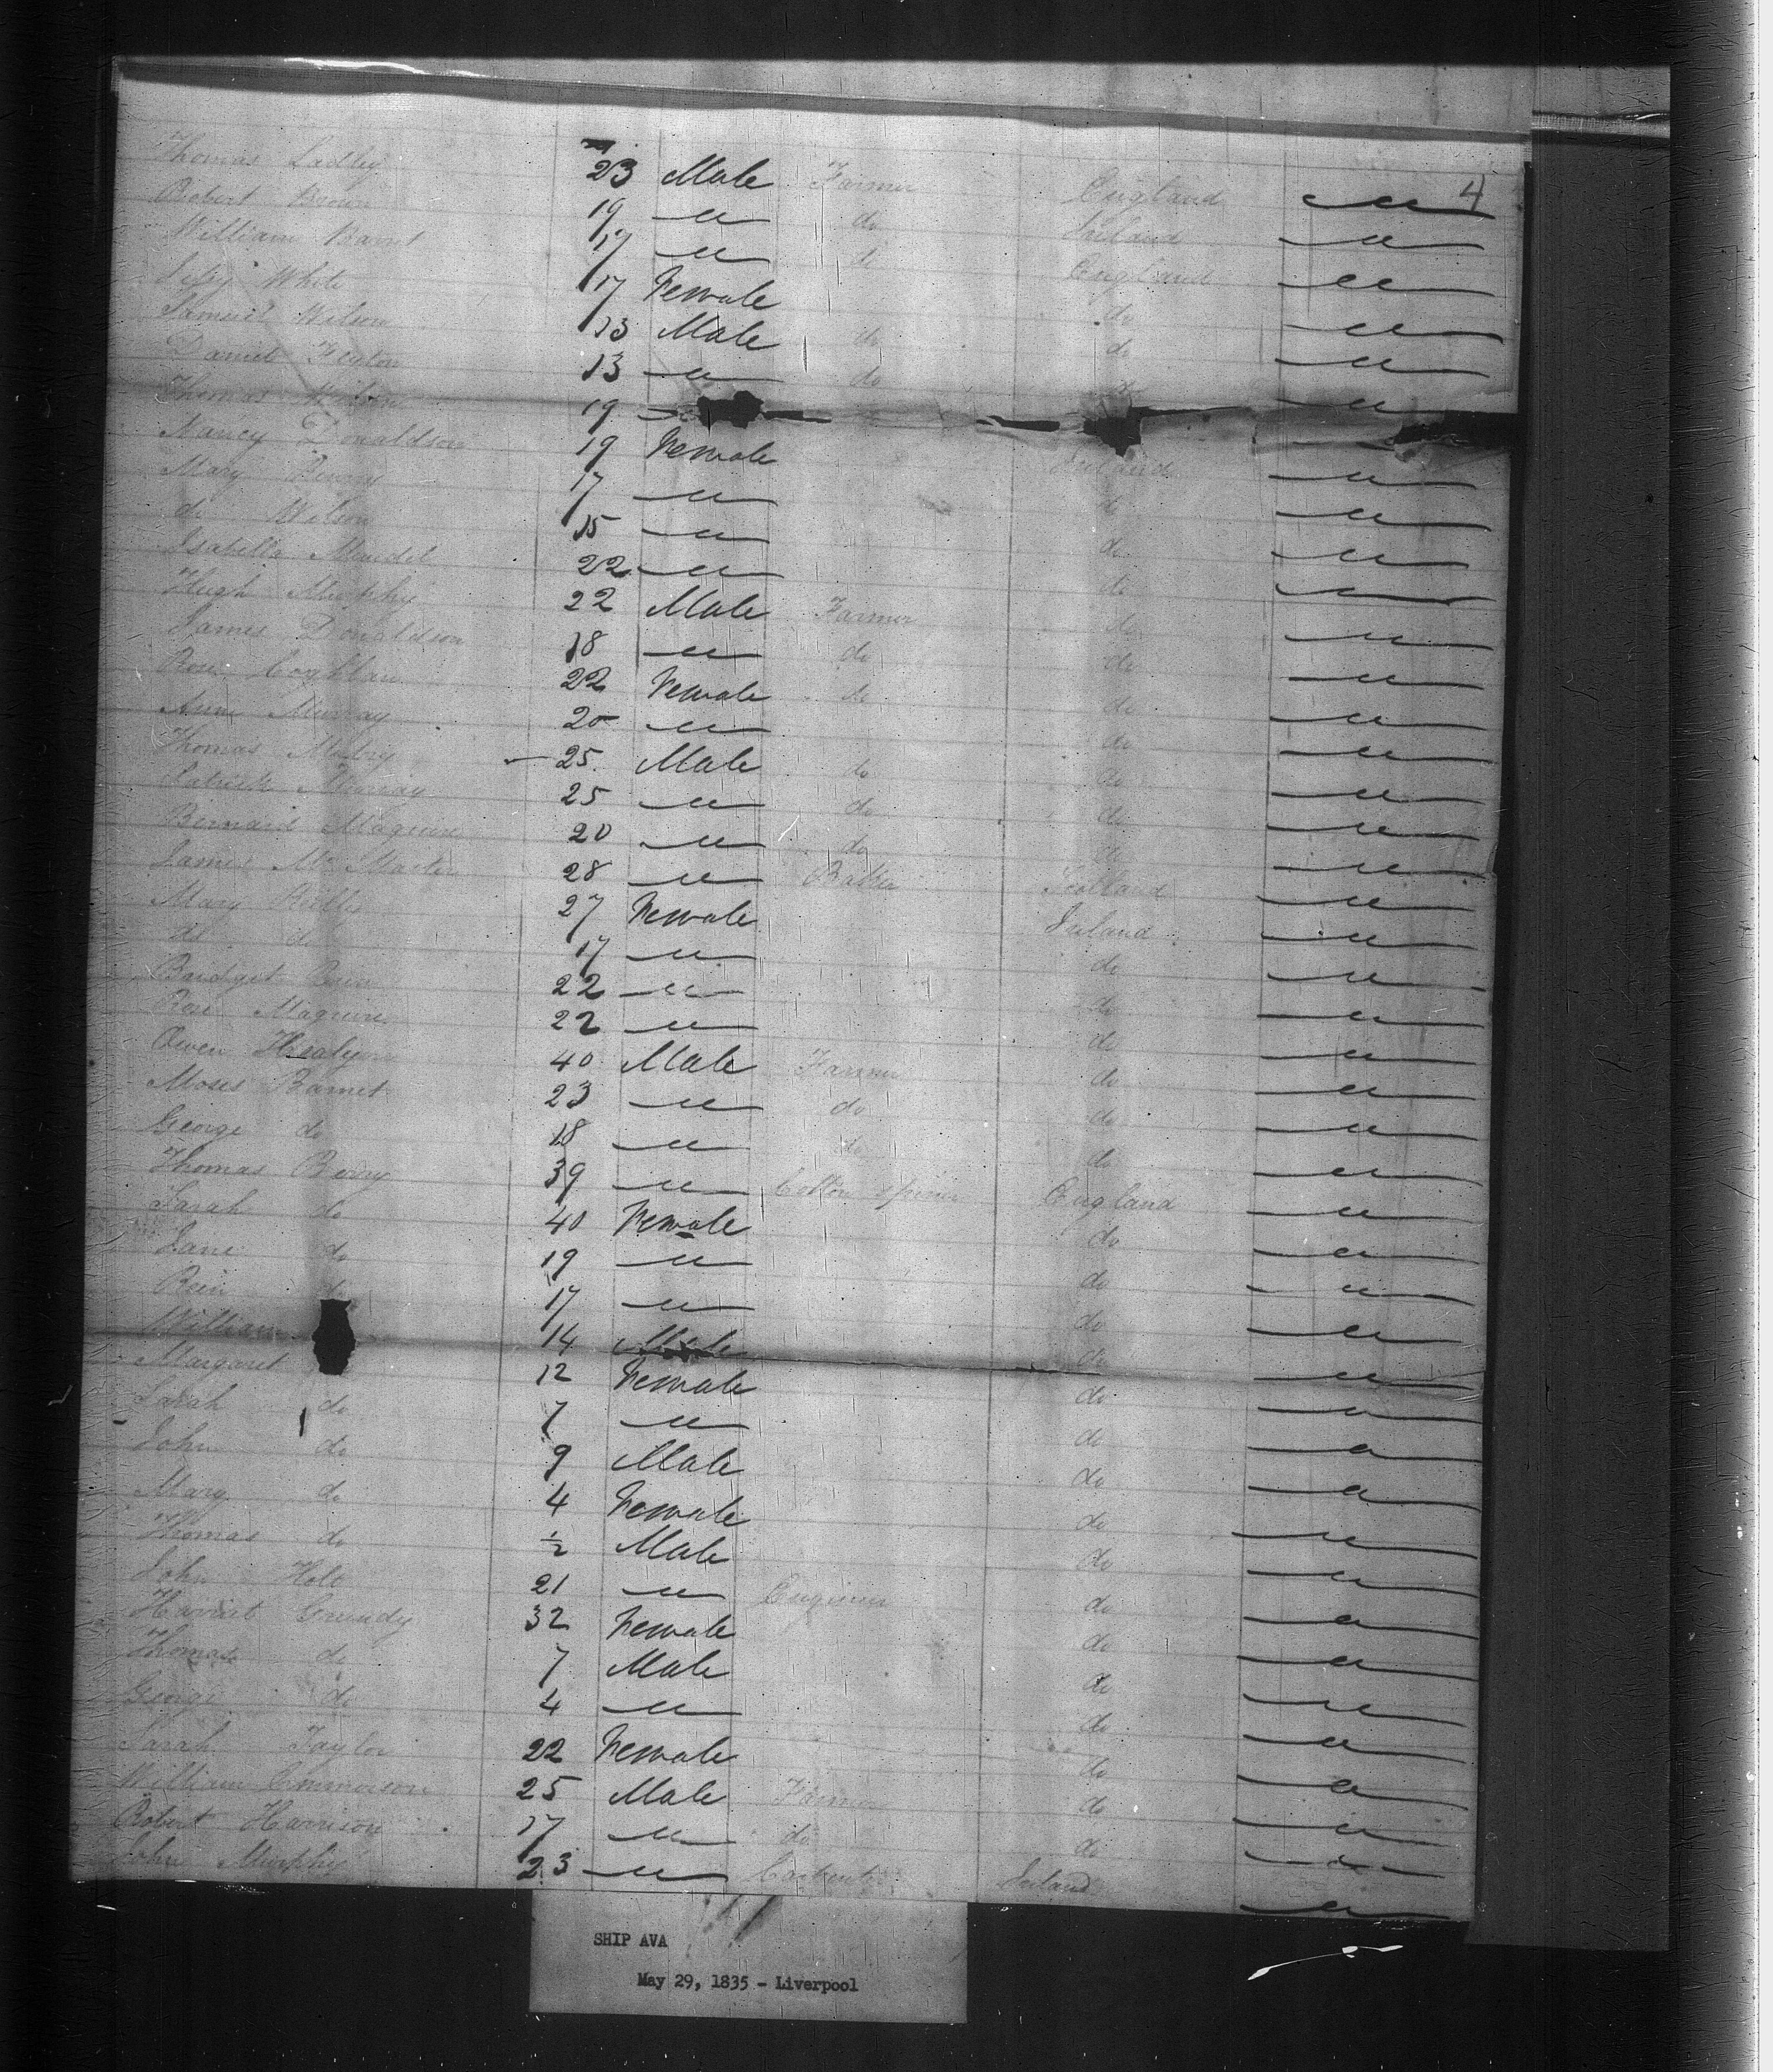 4
Thomas Ladley 23 Male Farmer England "
Robert Brown 19 " do Ireland "
William Barnt 17 " do England "
White 17 Female do "
Samuel Wilson 13 Male do do "
Daniel 13 " do do "
Thomas Wilson 19 "
Nancy Donaldson 19 Female Ireland "
Mary 17 " do "
do Wilson 15 " do "
Isabella 22 " do "
Hugh Murphy 22 Male Farmer do "
James Donaldson 18 " do do "
Rose Coghlan 22 Female do do "
Ann Murray 20 " do "
Thomas 25 Male do do "
Patrick Murray 25 " do do "
Bernard Maguire 20 " do do "
James McMaster 28 " Baker Scotland "
Mary 27 Female Ireland "
do do 17 " do "
Bridget 22 " do "
Rose Maguire 22 " do "
Owen 40 Male Farmer do "
Moses Barnet 23 " do do "
George do 18 " do do "
Thomas Berry 39 " Cotton spinner England "
Sarah do 40 Female do "
Jane do 19 " do "
do 17 " do "
William 14 Male do "
Margaret 12 Female do "
Sarah do 7 " do "
John do 9 Male do "
Mary do 4 Female do "
Thomas do ½ Male do "
John Holt 21 " Engineer do "
Harriat Grundy 32 Female do "
Thomas do 7 Male do "
George do 4 " do "
Sarah Taylor 22 Female do "
William Emmerson 25 Male Farmer do "
Robert Harrison 17 " do do "
John Murphy 23 " Carpenter Ireland "
SHIP AVA
May 29, 1835 - Liverpool